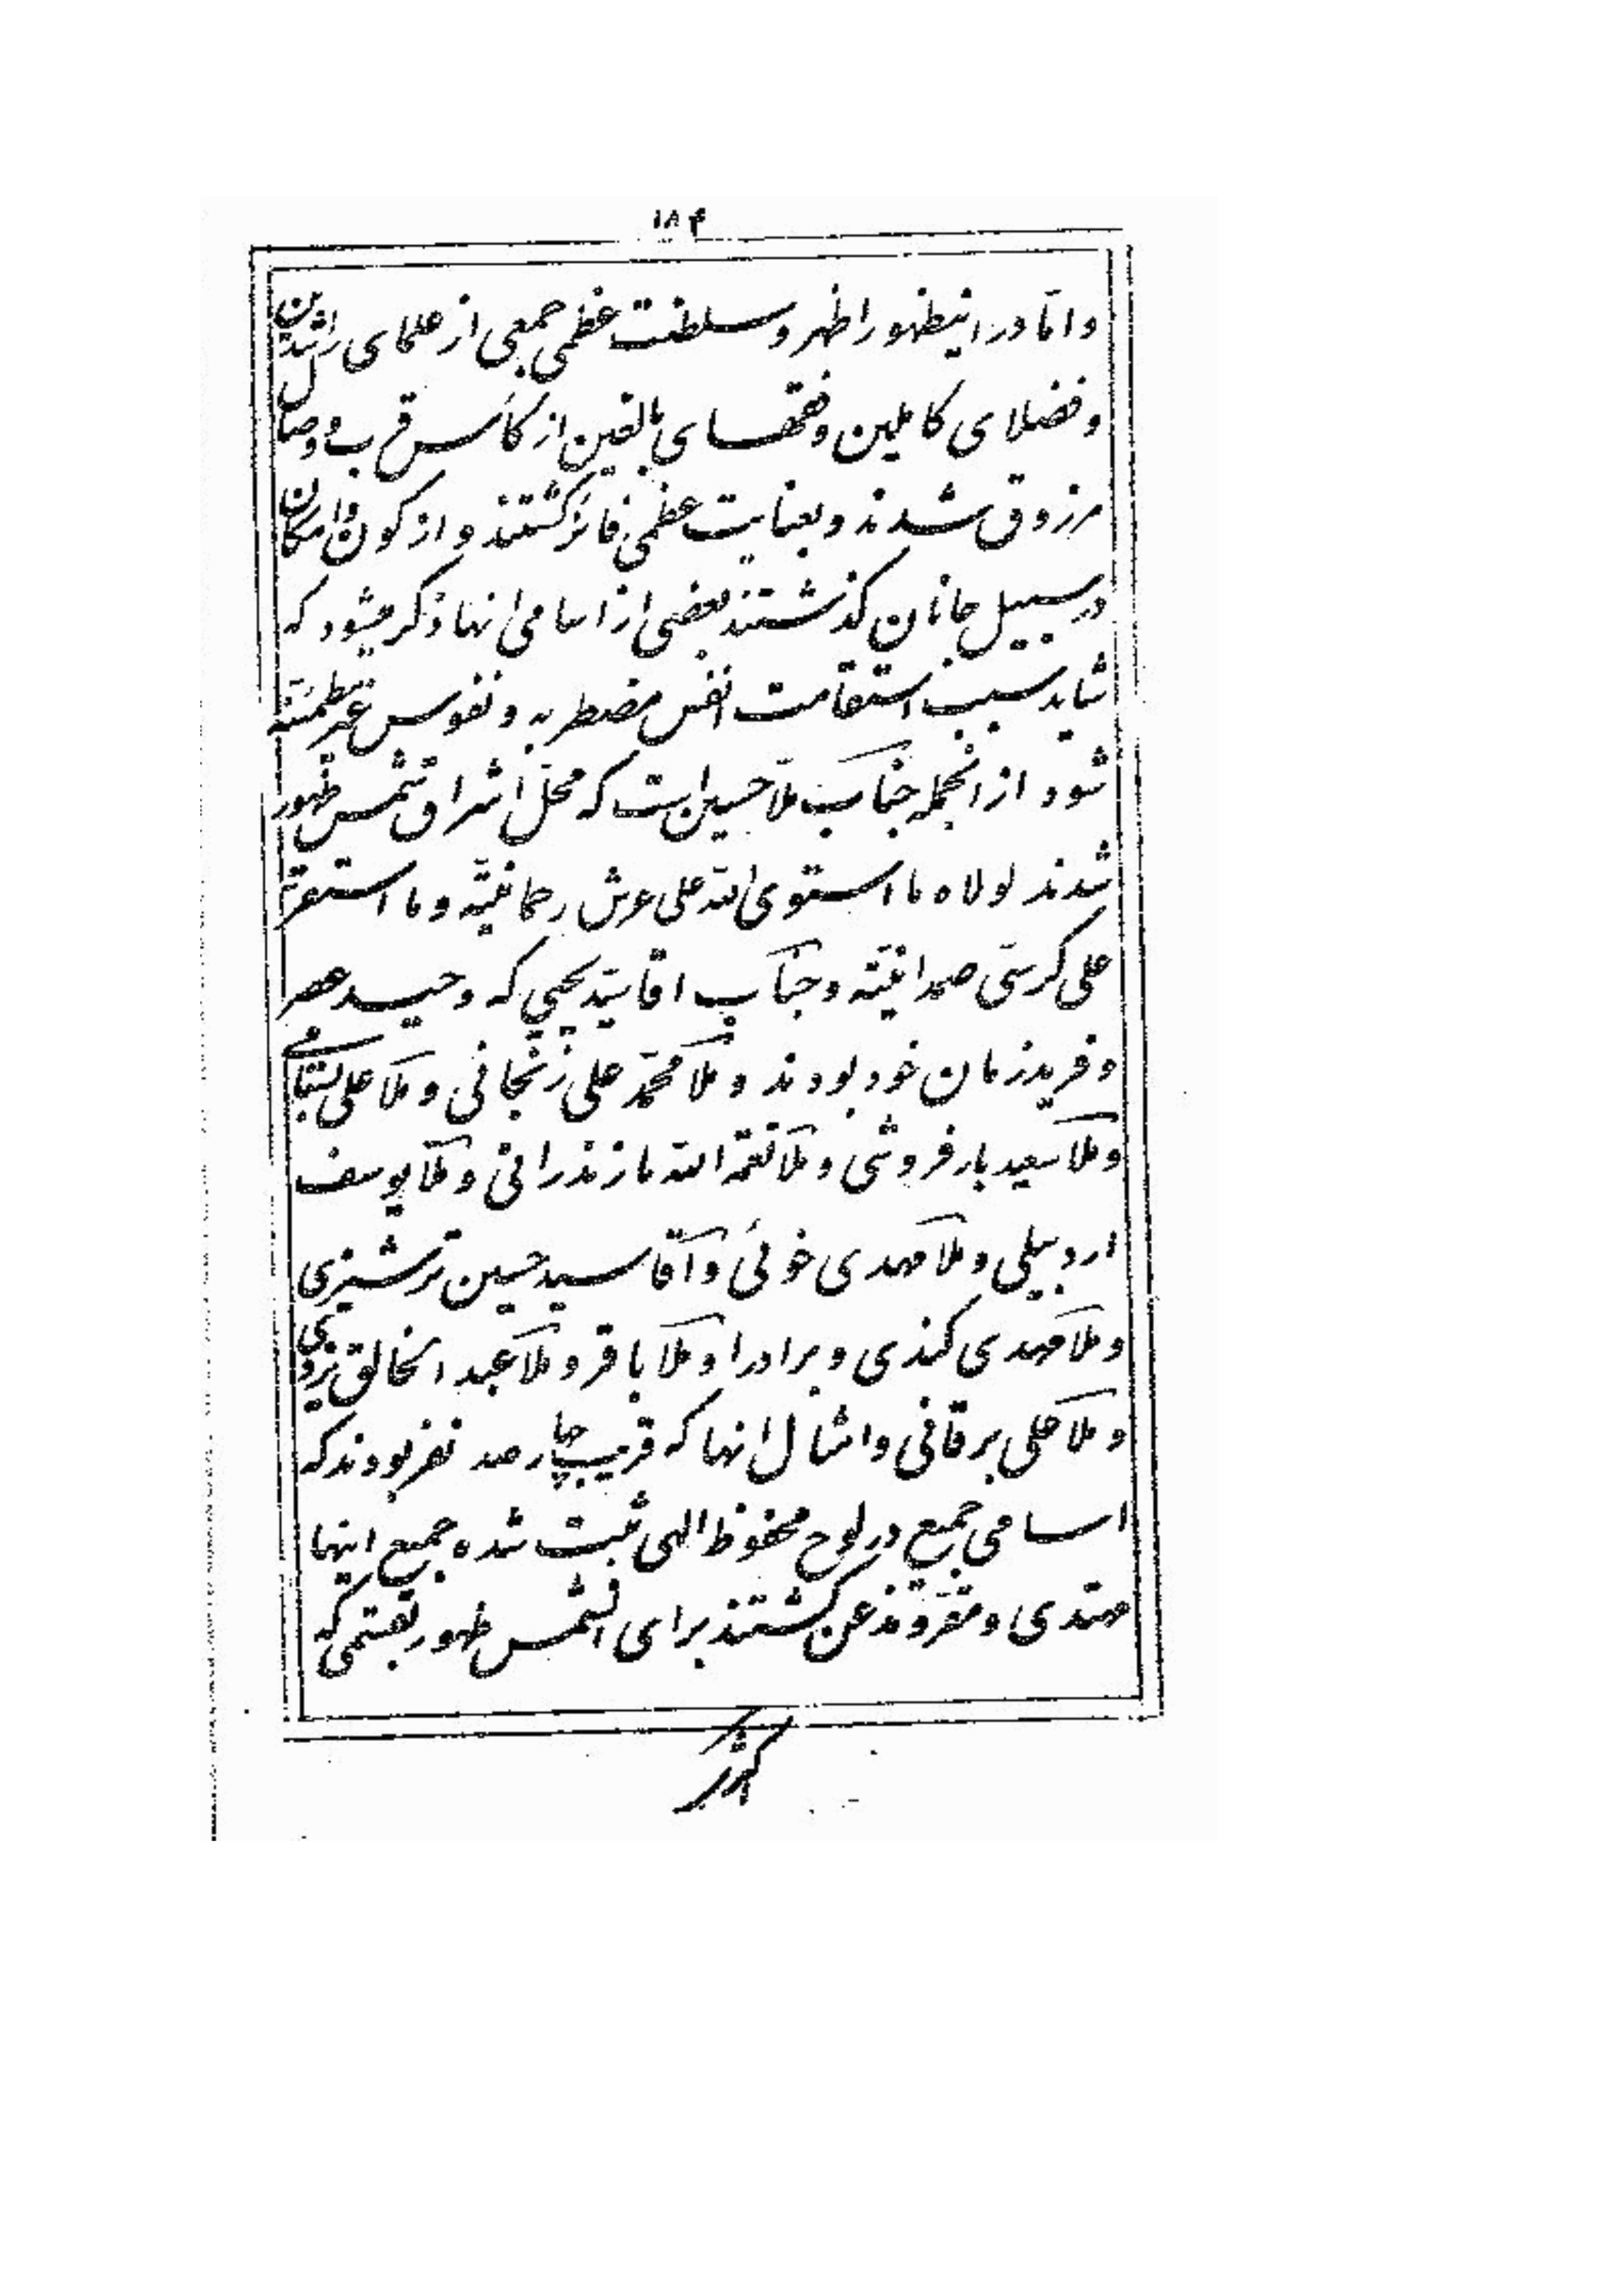 ۱۸۴
و امّا در اینظهور اظهر و سلطنت عظمی جمعی از علمای راشدین
و فضلای کاملین و فقهای بالغین از کأس قرب و وصال
مرزوق شدند و بعنایت عظمی فائز گشتند و از کون و امکان
در سبیل جانان گذشتند بعضی از اسامی انها ذکر میشود که
شاید سبب استقامت انفس مضطربه و نفوس غیر مطمئنّه
شود از انجمله جناب ملّا حسین است که محلّ اشراق شمس ظهور
شدند لولاه ما استوی اللّه علی عرش رحمانیّته و ما استقرّ
علی کرسیّ صمدانیّته و جناب اقا سیّد یحیی که وحید عصر
و فرید زمان خود بودند و ملّا محمّد علی زنجانی و ملّا علی بسطامی
و ملّا سعید بارفروشی و ملّا نعمة اللّه مازندرانی و ملّا یوسف
اردبیلی و ملّا مهدی خوئی و آقا سید حسین ترشیزی
و ملّا مهدی کندی و برادر او ملّا باقر و ملّا عبد الخالق یزدی
و ملّا علی برقانی و امثال انها که قریب چهارصد نفر بودند که
اسامی جمیع در لوح محفوظ الهی ثبت شده جمیع اینها
مهتدی و مقرّ و مذعن گشتند برای انشمس ظهور بقسمی که
اکثر